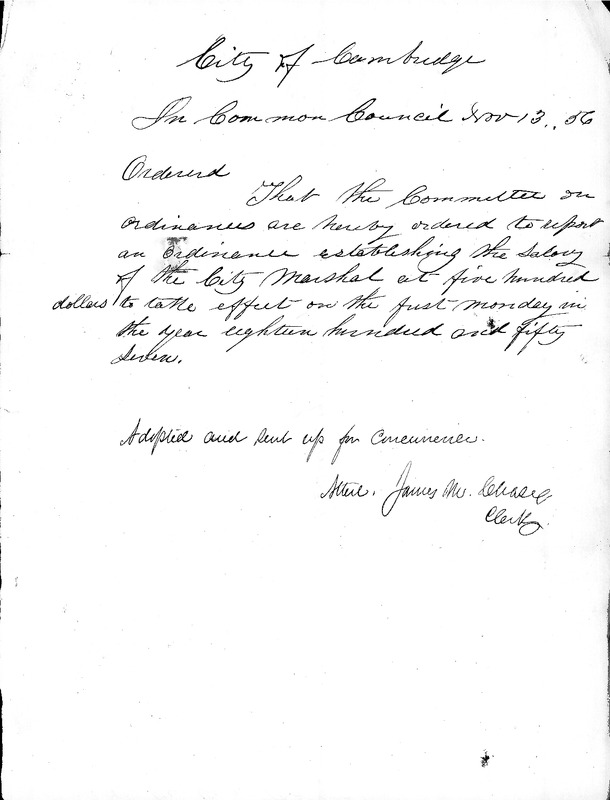 City of Cambridge
In Common Council Nov 13, 56
Ordered
That the Committee on
ordinances are hereby ordered to report
an Ordinance establishing the Salary
of the City Marshal at five hundred
dollars to take effect on the first monday in
the year eighteen hundred and fifty
Seven.
Adopted and sent up for concurrence.
Attest. James M. Chase
Clerk.